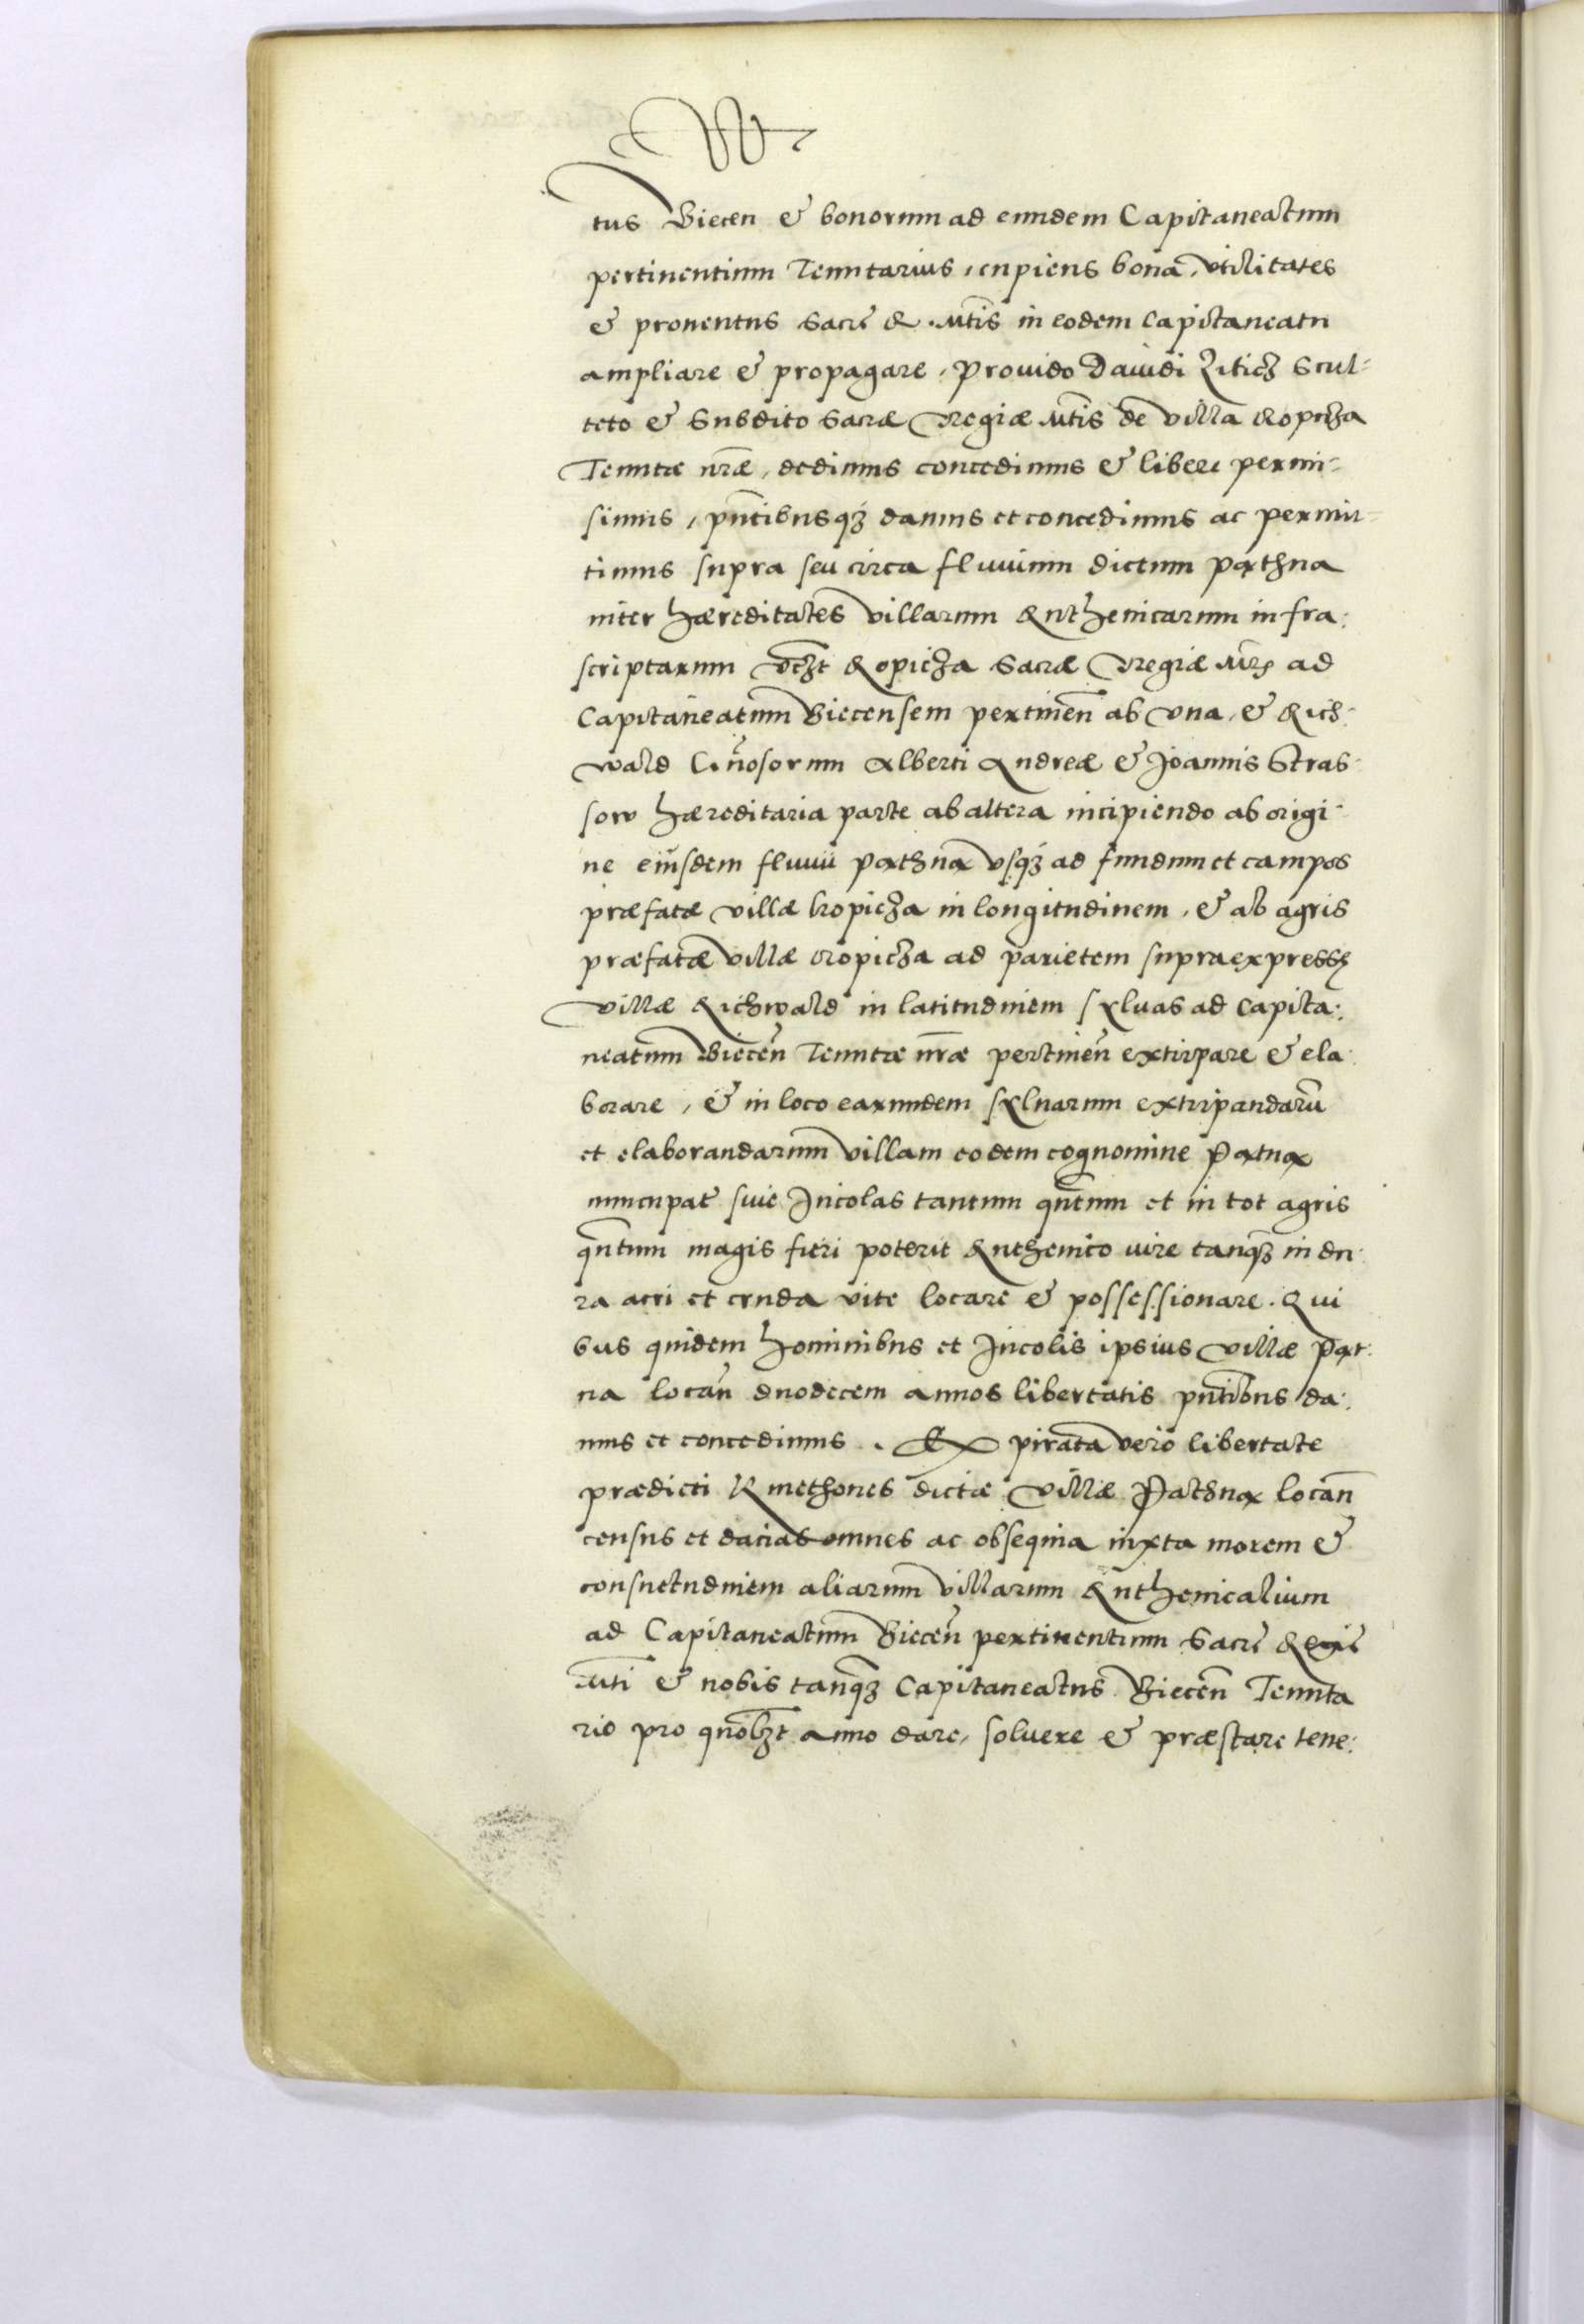 tus Biecen̄ & bonorum ad eundem Capitaneatum
pertinentium Tenutarius, cupiens bona, vtilitates
& prouentus Sacrȩ R. Mt̄is in eodem Capitaneatu
ampliare & propagare, Prouido Dauidi Ziticz Scul-
teto & Subdito Sacræ Regiæ Mt̄is de villa Ropicza
Tenutæ nr̄æ, dedimus concedimus & libere permi-
simus, pn̄tibusqȝ damus et concedimus ac permit-
timus supra seu circa fluuium dictum Pąthna
inter hæreditates villarum Ruthenicarum infra-
scriptarum vcȝt Ropicza Sacræ Regiæ Mt̄is ad
Capitaneatum Biecensem pertinen̄ ab vna, & Rich-
wald G.n̄osorum Alberti Andreæ & Joannis Stras-
sow hæreditaria parte ab altera incipiendo ab origi-
ne eiusdem fluuii Pąthna vsqȝ ad fundum et campos
præfatæ villæ Ropicza in longitudinem, & ab agris
præfatæ villæ Ropicza ad parietem supraexpressȩ
villæ Richwald in latitudinem syluas ad Capita-
neatum Biecen̄ Tenutæ nr̄æ pertinen̄ extirpare & ela-
borare, & in loco earundem syluarum extirpandarū
et elaborandarum villam eodem cognomine Pątna
nuncupat̄ siue Jncolas tantum qn̄tum et in tot agris
qn̄tum magis fieri poterit Ruthenico iure tanqȝ in du-
ra acri et cruda vite locare & possessionare. Qui
bus quidem hominibus et Jncolis ipsius villæ Pąt-
na locan̄ duodecem annos libertatis pn̄tibus da-
mus et concedimus. Expirata vero libertate
prædicti Kmethones dictæ villæ Pathna locan̄
census et dacias omnes ac obsequia iuxta morem &
consuetudinem aliarum villarum Ruthenicalium
ad Capitaneatum Biecen̄ pertinentium Sacrȩ Regiȩ
Mt̄i & nobis tanqȝ Capitaneatus Biecen̄ Tenuta
rio pro quolȝt anno dare, soluere & præstare tene-